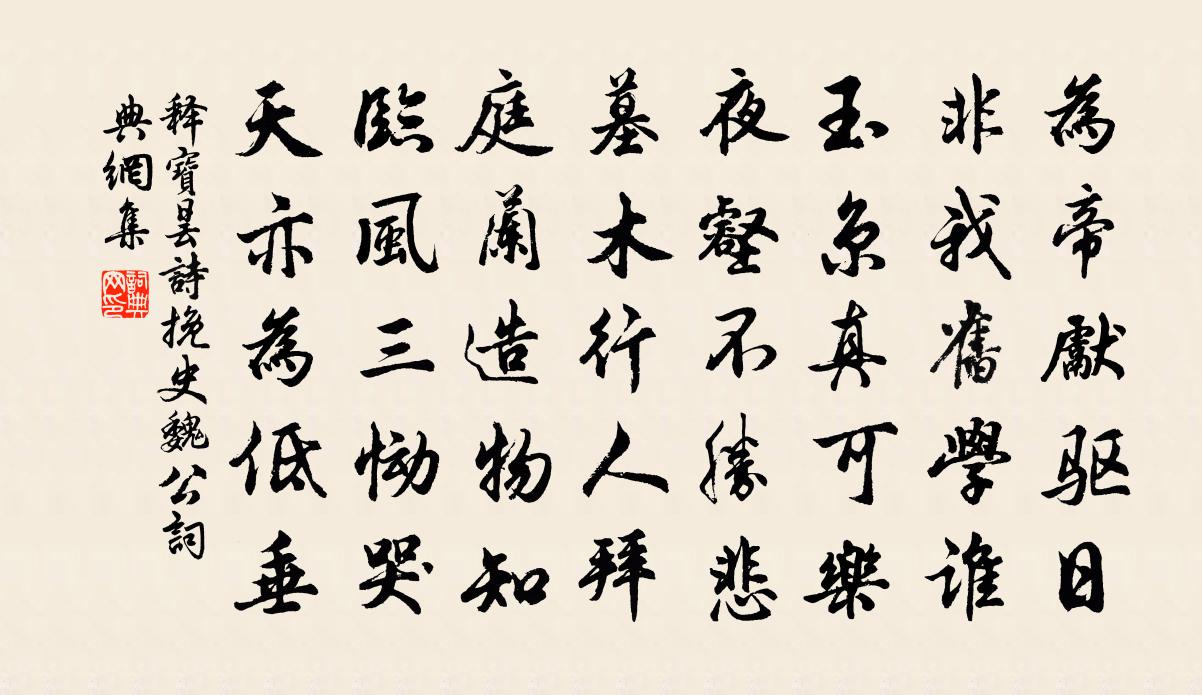 為帝獻驱日
非我舊學谁
玉京真可樂
夜壑不勝悲
墓木行人拜
庭蘭造物知
臨風三恸哭
天亦為低垂
释寶昙詩挽史魏公詞
典網集
詞典网印